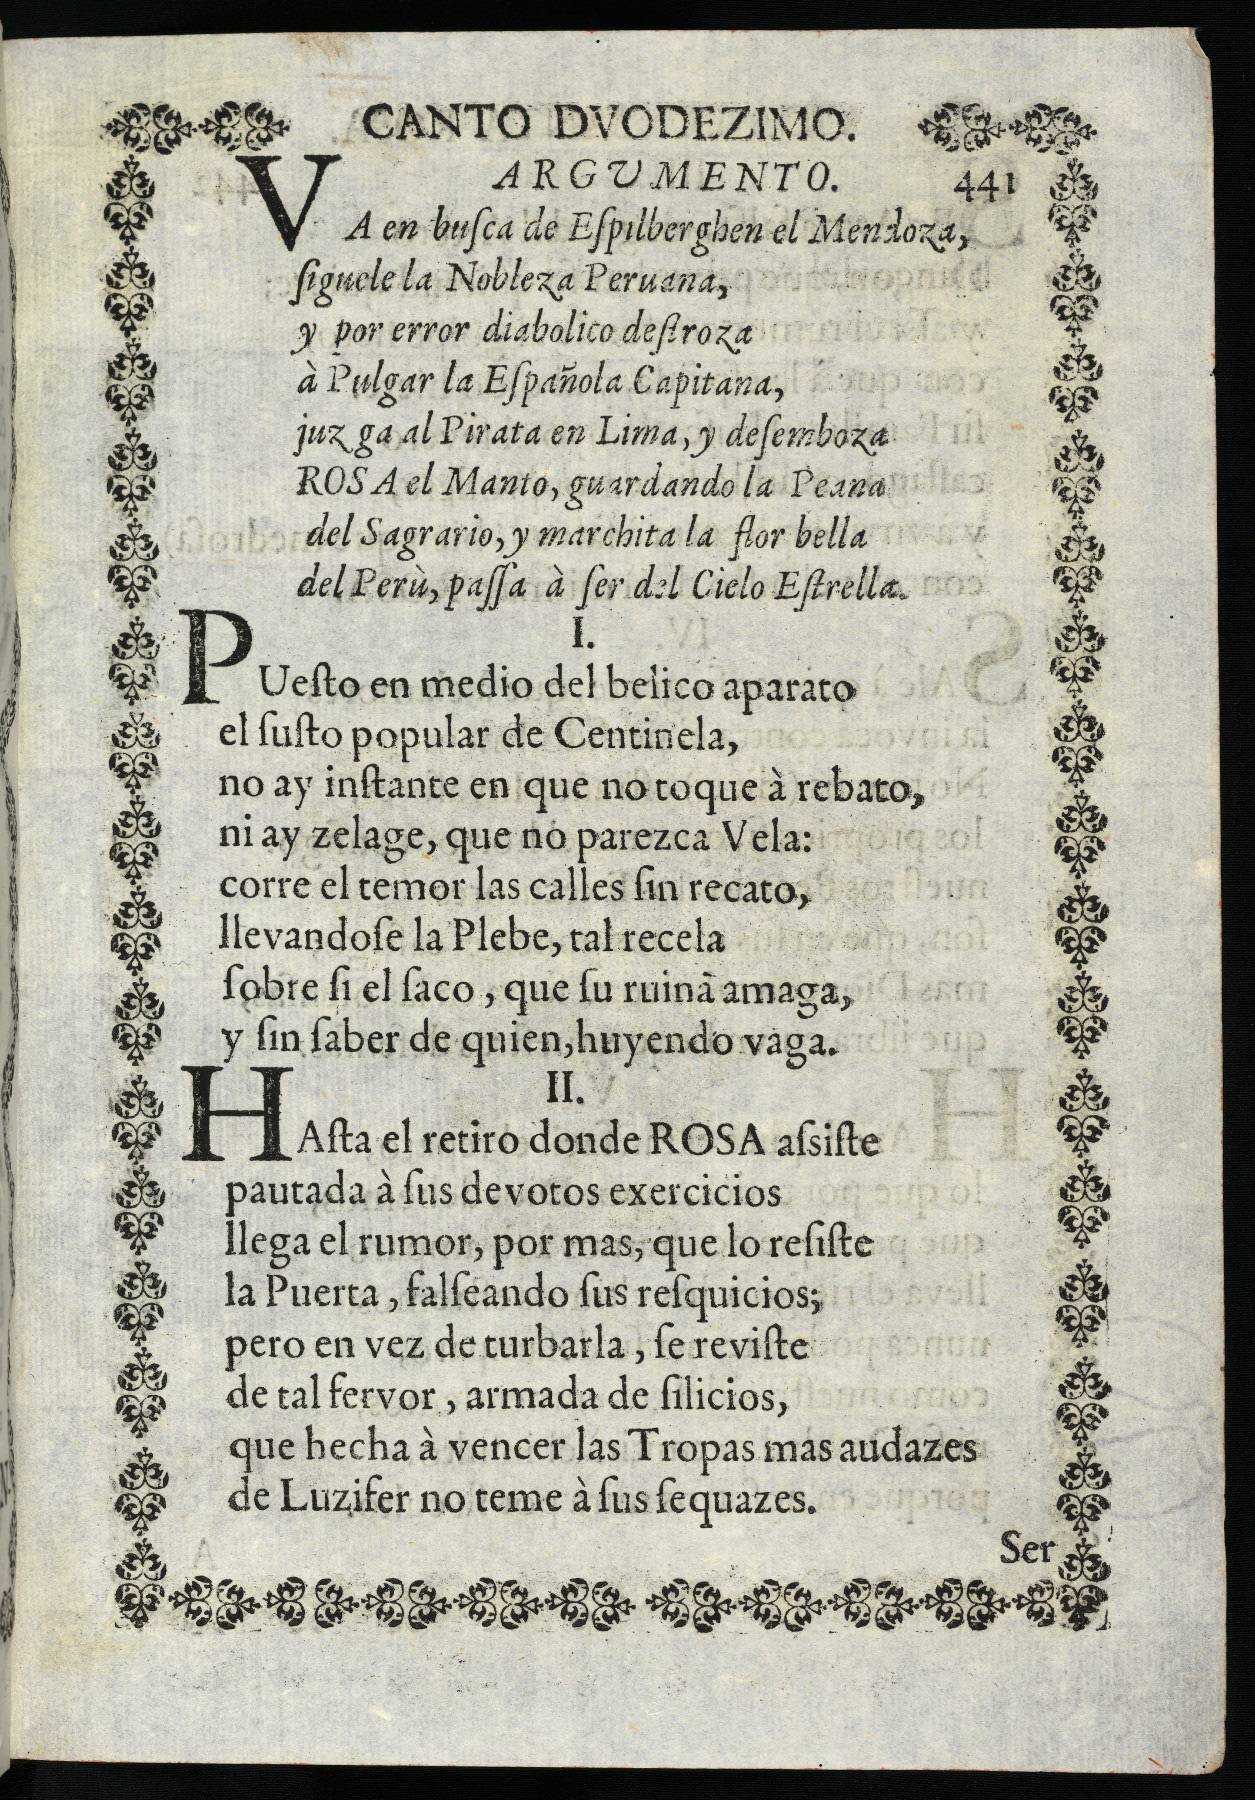 CANTO DVODEZIMO.
ARGUMENTO. 441
VA en buſca de Eſpilberghen el Mendoza,
ſiguele la Nobleza Peruana,
y por error diabolico deſtroza
à Pulgar la Eſpañola Capitana,
juzga al Pirata en Lima, y deſemboza
ROSA el Manto, guardando la Peana
del Sagrario, y marchita la flor bella
del Perù, paſſa à ſer del Cielo Eſtrella.
I.
PUeſto en medio del belico aparato
el ſuſto popular de Centinela,
no ay inſtante en que no toque à rebato,
ni ay zelage, que no parezca Vela:
corre el temor las calles ſin recato,
llevandoſe la Plebe, tal recela
ſobre ſi el ſaco, que ſu ruinã amaga,
y ſin ſaber de quien, huyendo vaga.
II.
HAſta el retiro donde ROSA aſsiſte
pautada à ſus devotos exercicios
llega el rumor, por mas, que lo reſiſte
la Puerta, falſeando ſus reſquicios;
pero en vez de turbarla, ſe reviſte
de tal fervor, armada de ſilicios,
que hecha à vencer las Tropas mas audazes
de Luzifer no teme à ſus ſequazes.
Ser